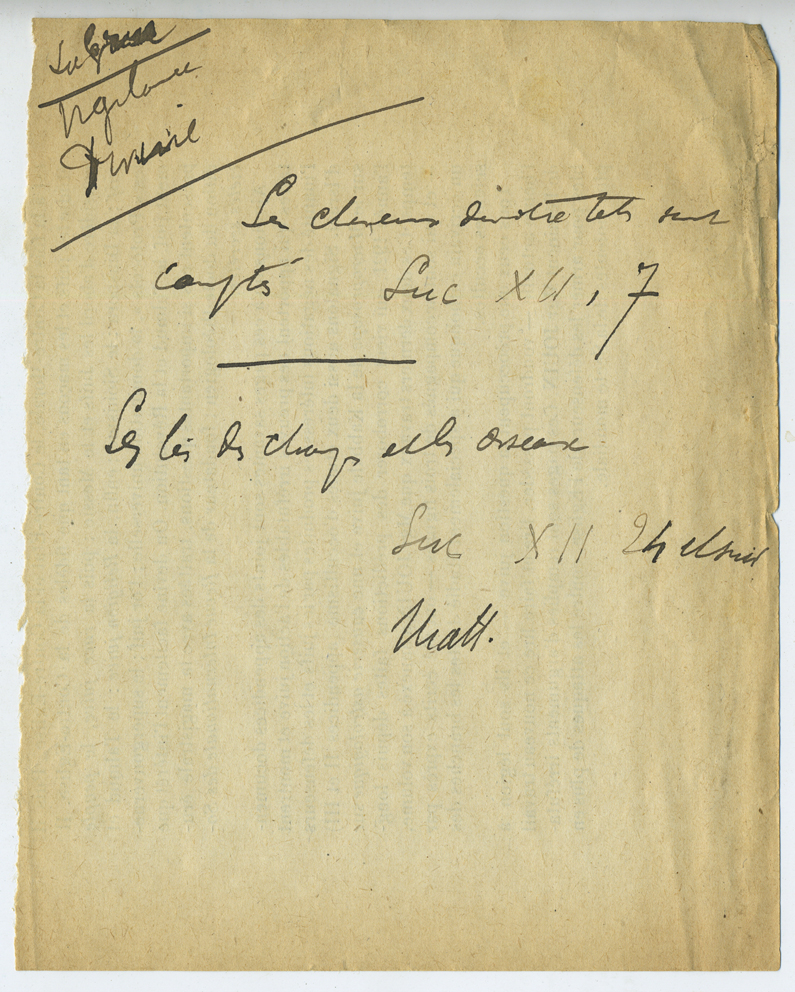 Vigilance
Les cheveux de votre tête sont
comptés Luc XII, 7
Les lis des champs et les oiseaux
Luc XII 24 et suiv
Matt.